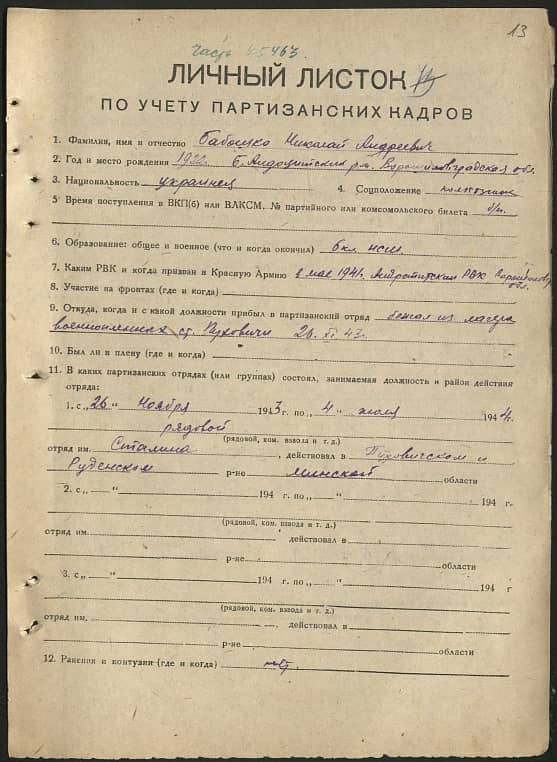 13
Часть 45463.
ЛИЧНЫЙ ЛИСТОК
ПО УЧЕТУ ПАРТИЗАНСКИХ КАДРОВ
1. Фамилия, имя и отчество Бабошко Николай Андреевич
2. Год и место рождения 1922г. р-н. Ворошиловградская обл.
3. Национальность украинец 4. Соцположение колхозник
5. Время поступления в ВКП(б) или ВЛКСМ, № партийного или комсомольского билета б/п.
6. Образование: общее и военное (что и когда окончил) 6кл. нсш.
7. Каким РВК и когда призван в Красную Армию в мае 1941г. РВК
обл.
8. Участие на фронтах (где и когда)
9. Откуда, когда и с какой должности прибыл в партизанский отряд бежал из лагеря
военнопленных ст. Пуховичи 26. XI 43г.
10. Был ли в плену (где и когда)
11. В каких партизанских отрядах (или группах) состоял, занимаемая должность и район действия
отряда:
1. с „26“ ноября 1943 г. по „4“ июля 1944г.
рядовой
(рядовой, ком. взвода и т. д.)
отряд им. Сталина, действовал в Пуховичском и
Руденском р-не Минской области
2. с „ “ 194 г. по „ “ 194 г.
(рядовой, ком. взвода и т. д.)
отряд им. действовал в
р-не области
3. с „ “ 194 г. по „ “ 194 г
(рядовой, ком. взвода и т. д.)
отряд им. , действовал в
р-не области
12. Ранения и контузии (где и когда) нет.